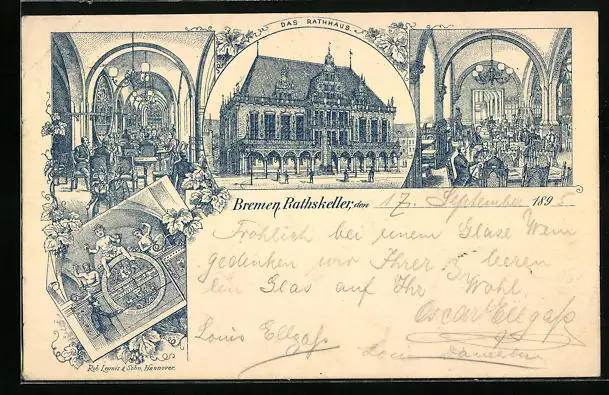 DAS RATHHAUS.
Bremen, Rathskeller, den 17. September 1895
Fröhlich bei einem Glase Wein
gedenken wir Ihrer & leeren
ein Glas auf Ihr Wohl
Oscar Ellgaß
Louis Ellgaß
Rob. Leunis & Sohn, Hannover.